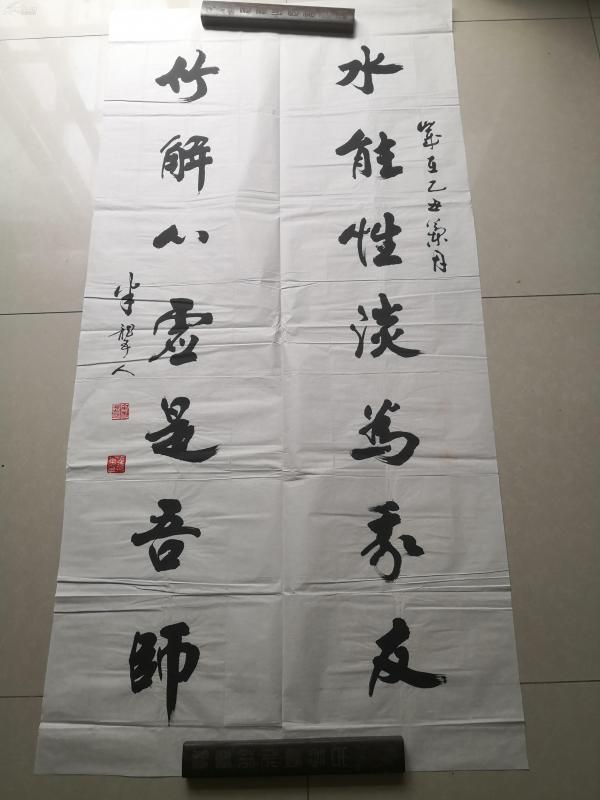 歲在乙丑蘭月
水能性淡為我友
竹解心虛是吾師
半聾人